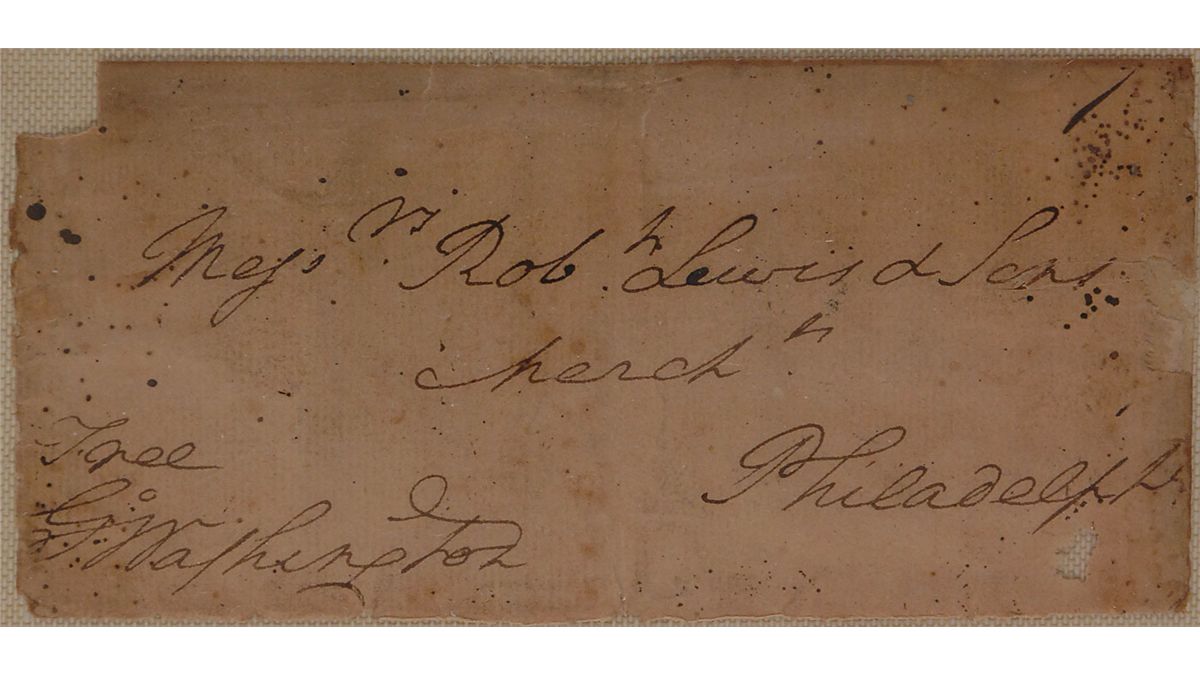 Messrs Robt Lewis & Sons
Merchts
Philadelph
Free
Go Washington